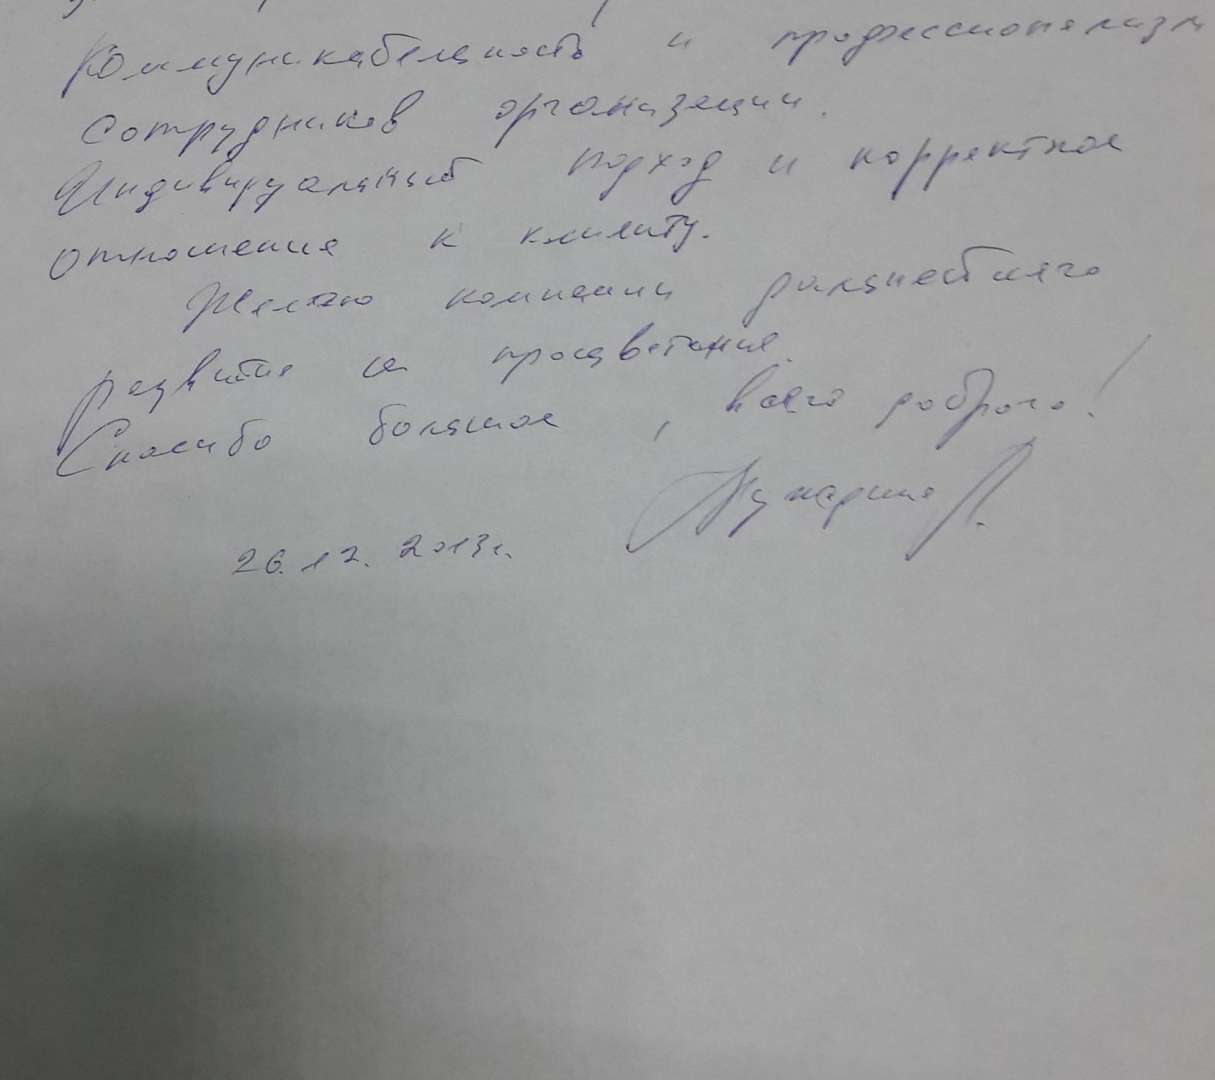 Коммуникабельность и профессионализм
сотрудников организации.
Индивидуальный подход и корректное
отношение к клиенту.
Желаю компании дальнейшего
развития и процветания.
Спасибо большое, всего доброго!
26.12.2013г.